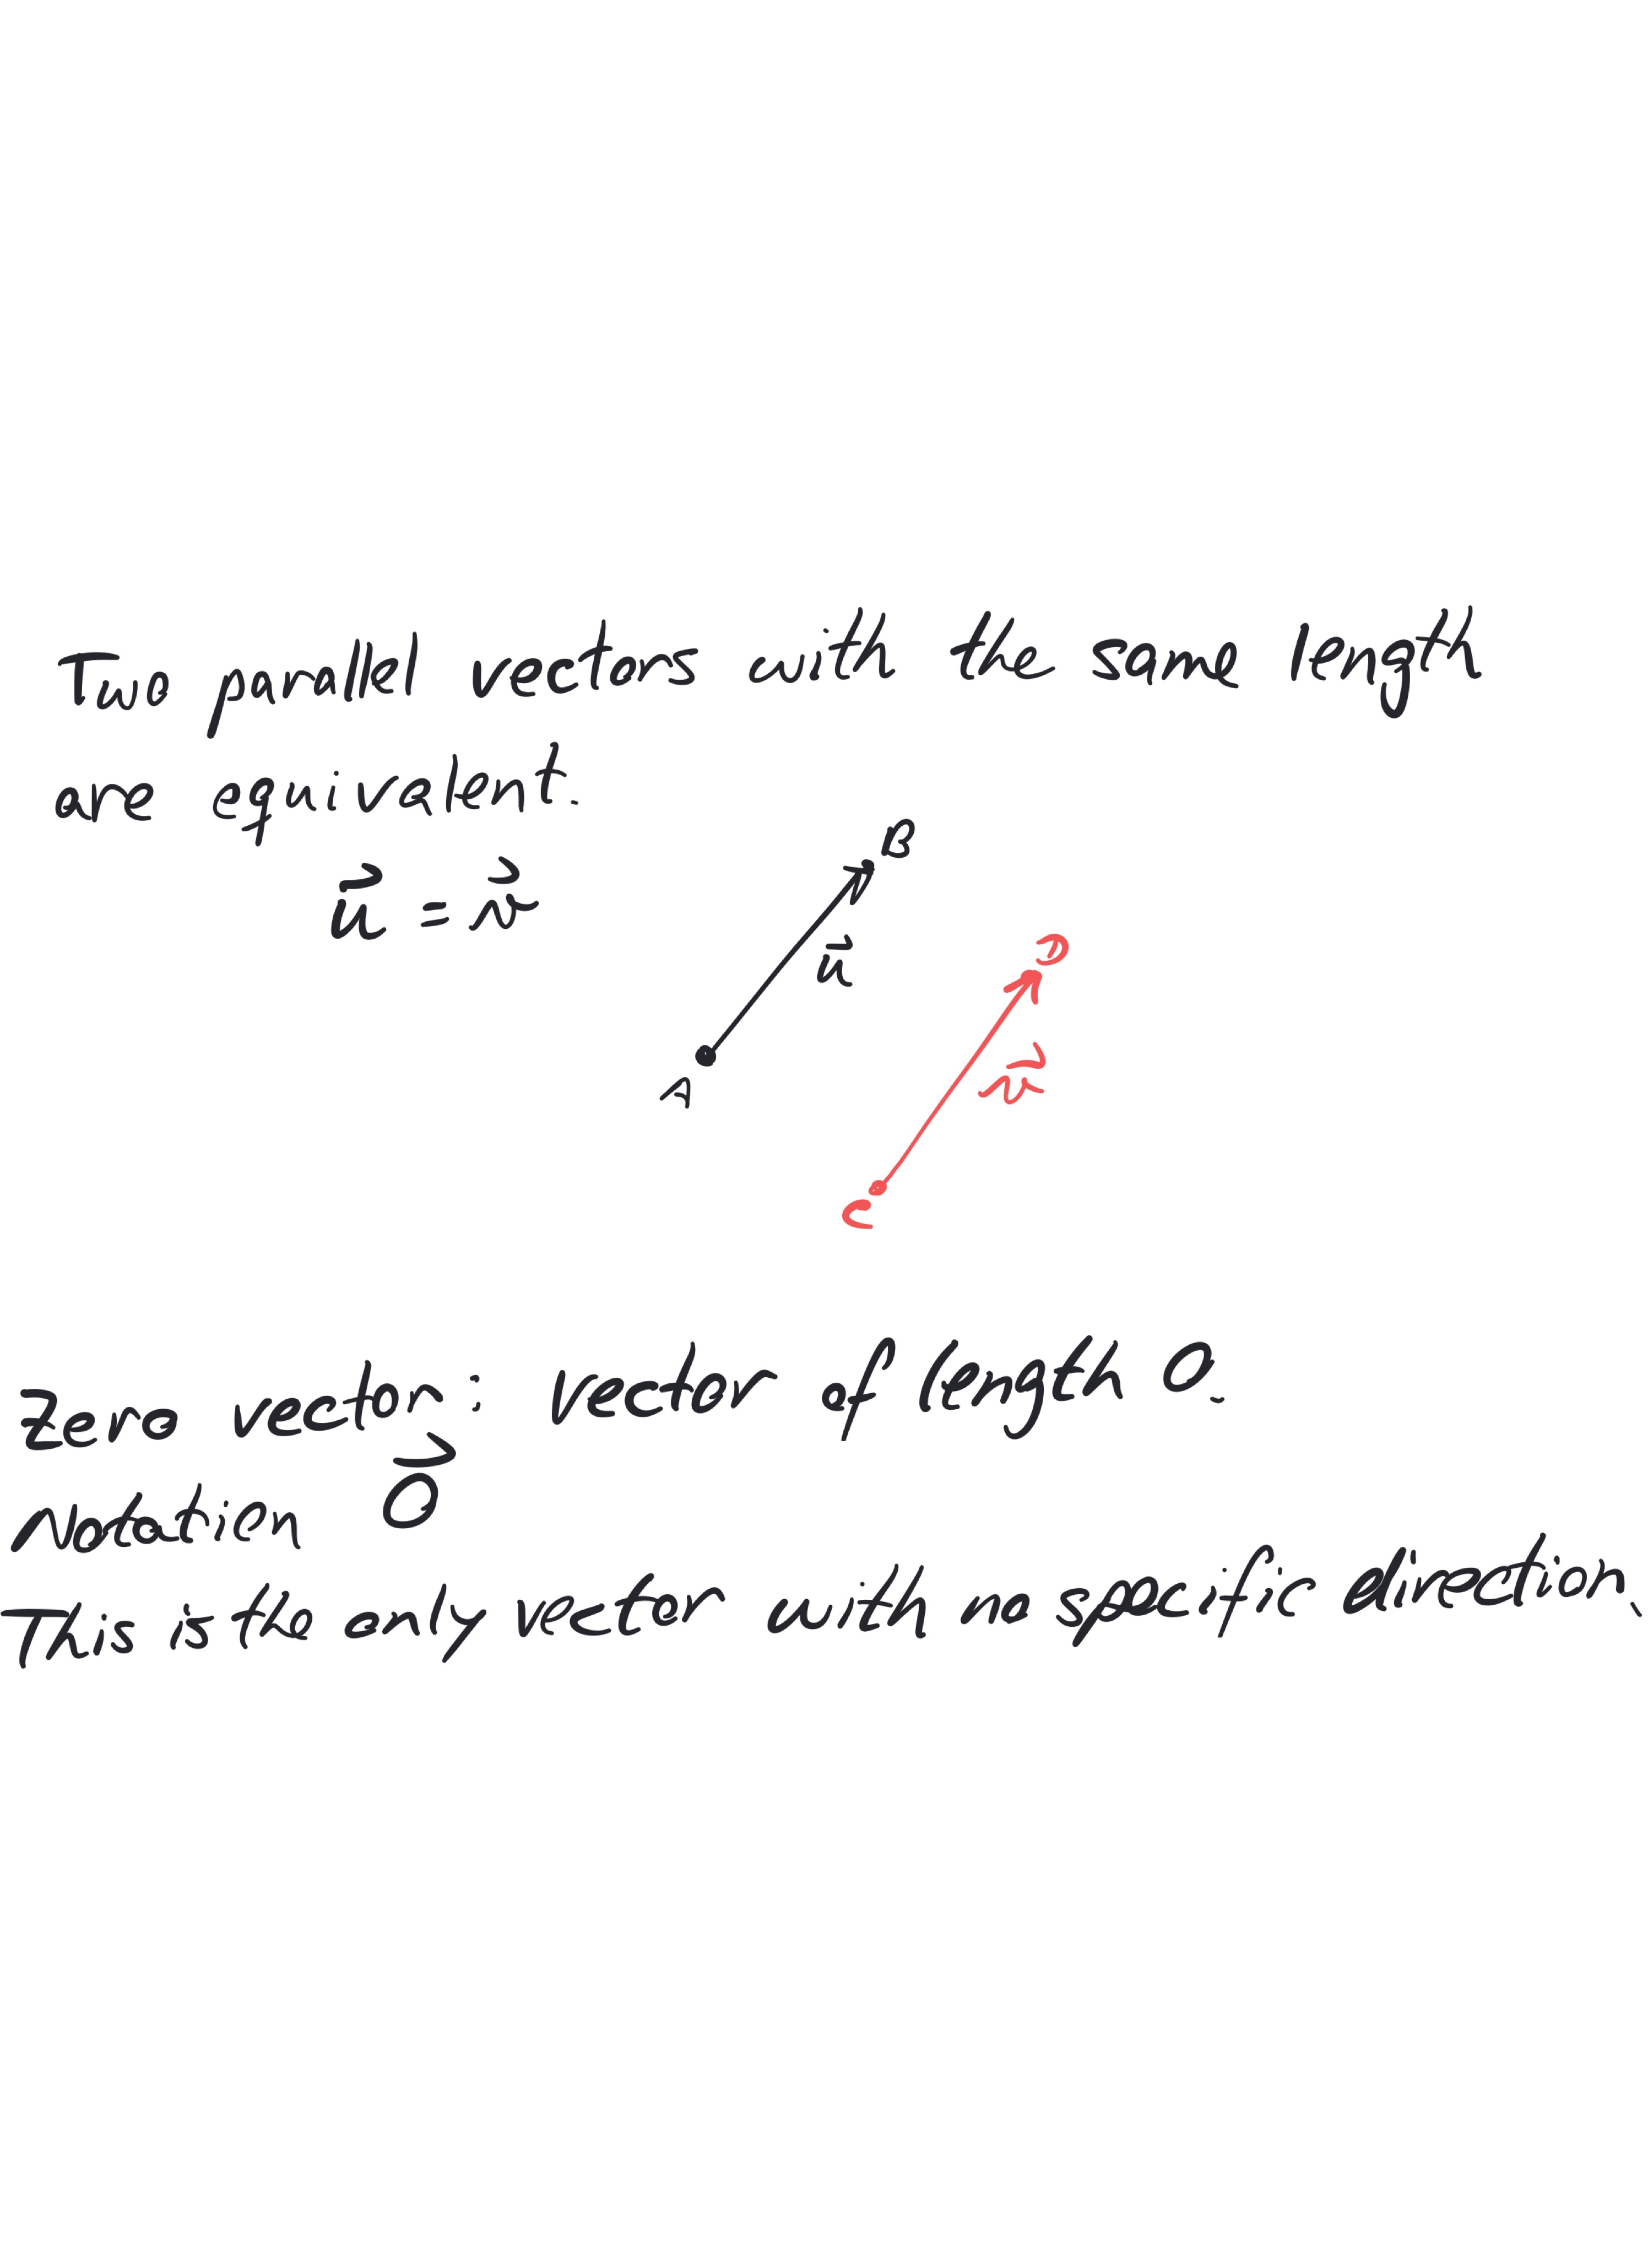 Two parallel vectors with the same length
are equivalent.
B
u⃗ = v⃗
u⃗
D
A
v⃗
C
Zero vector: vector of length 0.
Notation 0⃗
This is the only vector with no specific direction.